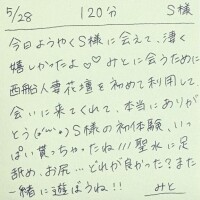 5/28 120分 S様
今日ようやくS様に会えて、凄く
嬉しかったよ♡♡みとに会うために
西船人妻花壇を初めて利用して、
会いに来てくれて、本当にありが
とう(*´﹀`*)S様の初体験、いっ
ぱい貰っちゃったね///聖水に足
舐め、お尻…どれが良かった?また
一緒に遊ぼうね!!
みと